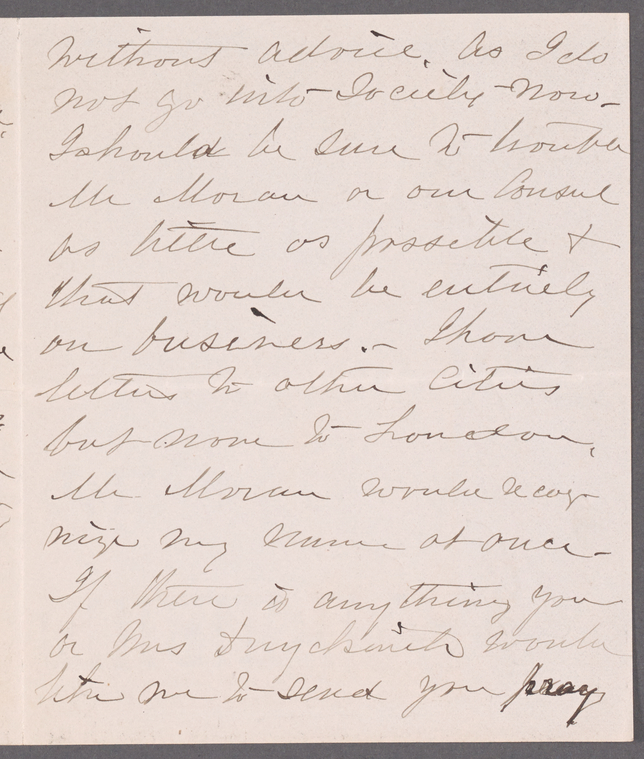 without advice. As I do
not go into Society now -
I should be sure to trouble
Mr Moran or our Consul
as little as possible &
that would be entirely
on business. - I have
letters to other Cities
but none to London,
Mr Moran would recog-
nize my name at once -
If there is anything you
or Mrs Duyckinck would
like me to send you pray